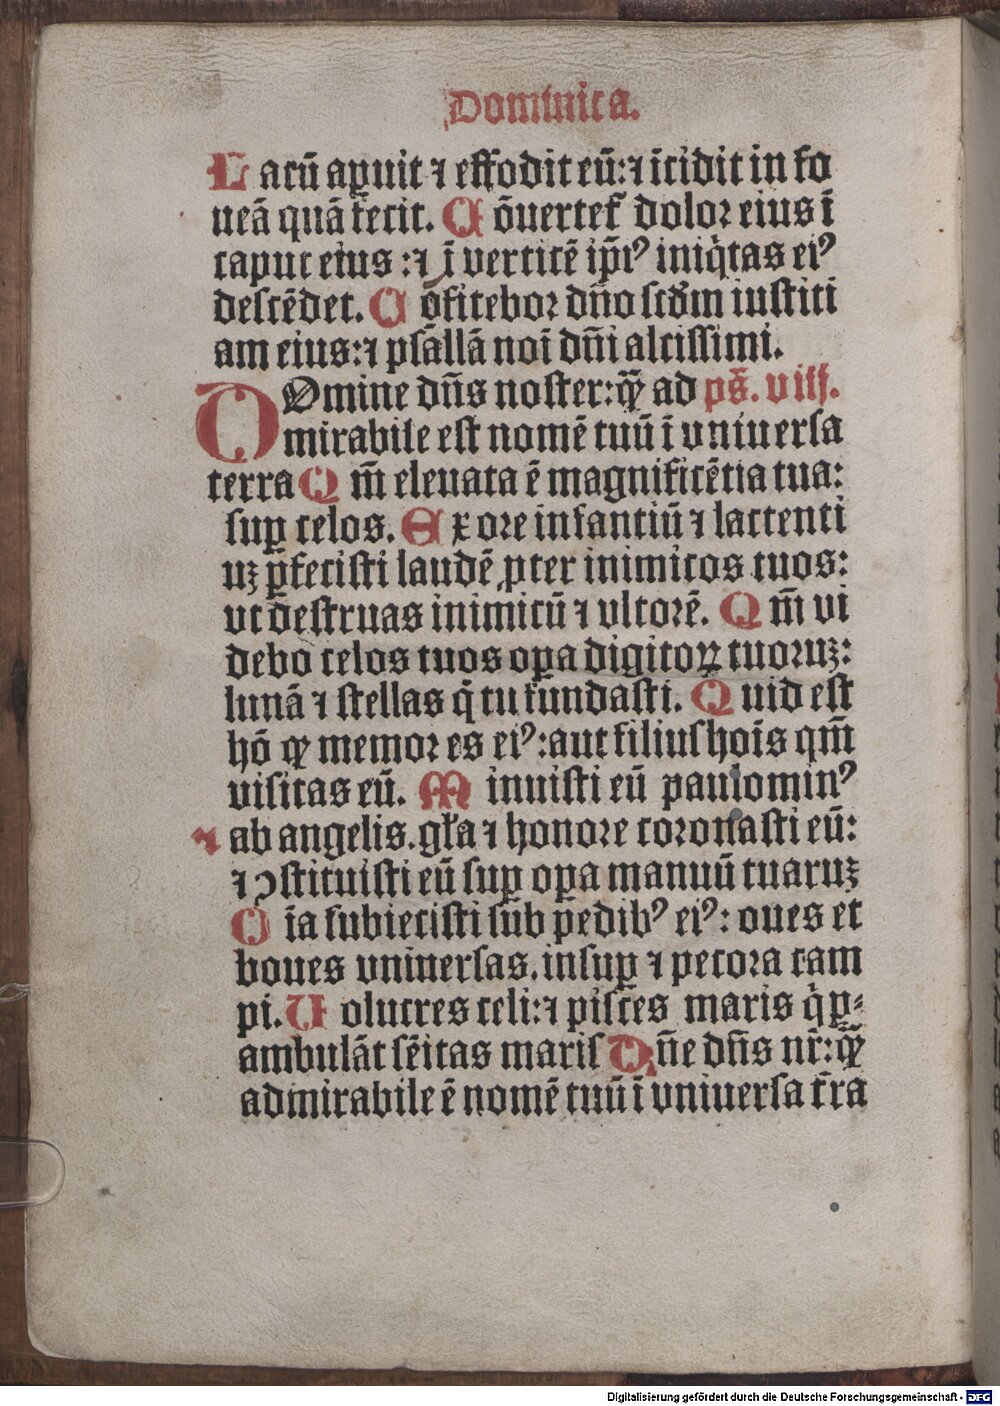 Dominica.
Lacū aꝑuit ⁊ effodit eū:⁊ īcidit in fo
ueā quā fecit. Cōuertet᷑ dolor eius ī
caput eius :⁊ ī verticē ip̄iꝰ iniq̇tas eiꝰ
descēdet. Cōfitebor dn̄o scd̄m iustici
am eius:⁊ psāllā noī dn̄i altissimi.
DOmine dn̄s noster:qꝫ̄ ad ps̄. viij.
mirabile est nomē tuū ī vniuersa
terra Qm̄ eleuata ē magnificētia tua:
suꝑ celos. Ex ore infantiū ⁊ lactenti
uꝫ ꝑfecisti laudē ꝓpter inimicos tuos:
vt destruas inimicū ⁊ vltorē. Qm̄ vi
debo celos tuos oꝑa digitoꝝ tuoruꝫ:
lunā ⁊ stellas q̄ tu fundasti. Quid est
hō qꝫ memor es eiꝰ:aut filius hoīs qm̄
visitas eū. Minuisti eū paulominꝰ
⁊ ab angelis.gl̄a ⁊ honore coronasti eū:
⁊ ꝯstituisti eū suꝑ oꝑa manuū tuaruꝫ
Oīa subiecisti sub pedibꝰ eiꝰ: oues et
boues vniuersas.insuꝑ ⁊ pecora cam
pi. Uolucres celi:⁊ pisces maris q̇ ꝑ⸗
ambulāt sēitas maris Dn̄e dn̄s nr̄:qꝫ̄
admirabile ē nomē tuū ī vniuersa tr̄ra
Digitalisierung gefördert durch die Deutsche Forschungsgemeinschaft - DFG